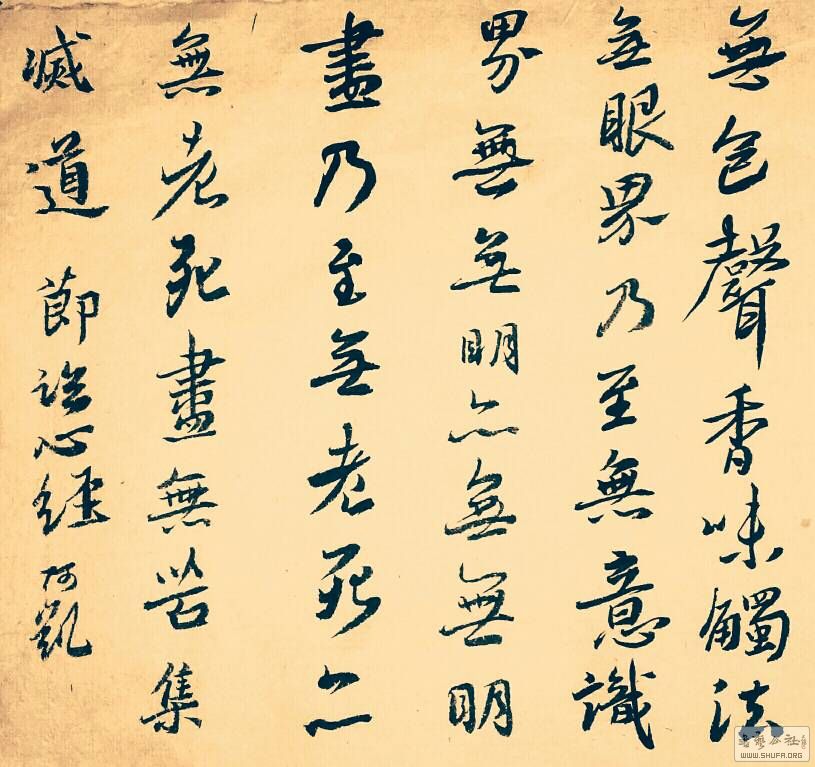 無色聲香味觸法
無眼界乃至無意識
界無無明亦無無明
盡乃至無老死亦
無老死盡無苦集
滅道 節 心經 阿凱
書藝公社
WWW.SHUFA.ORG